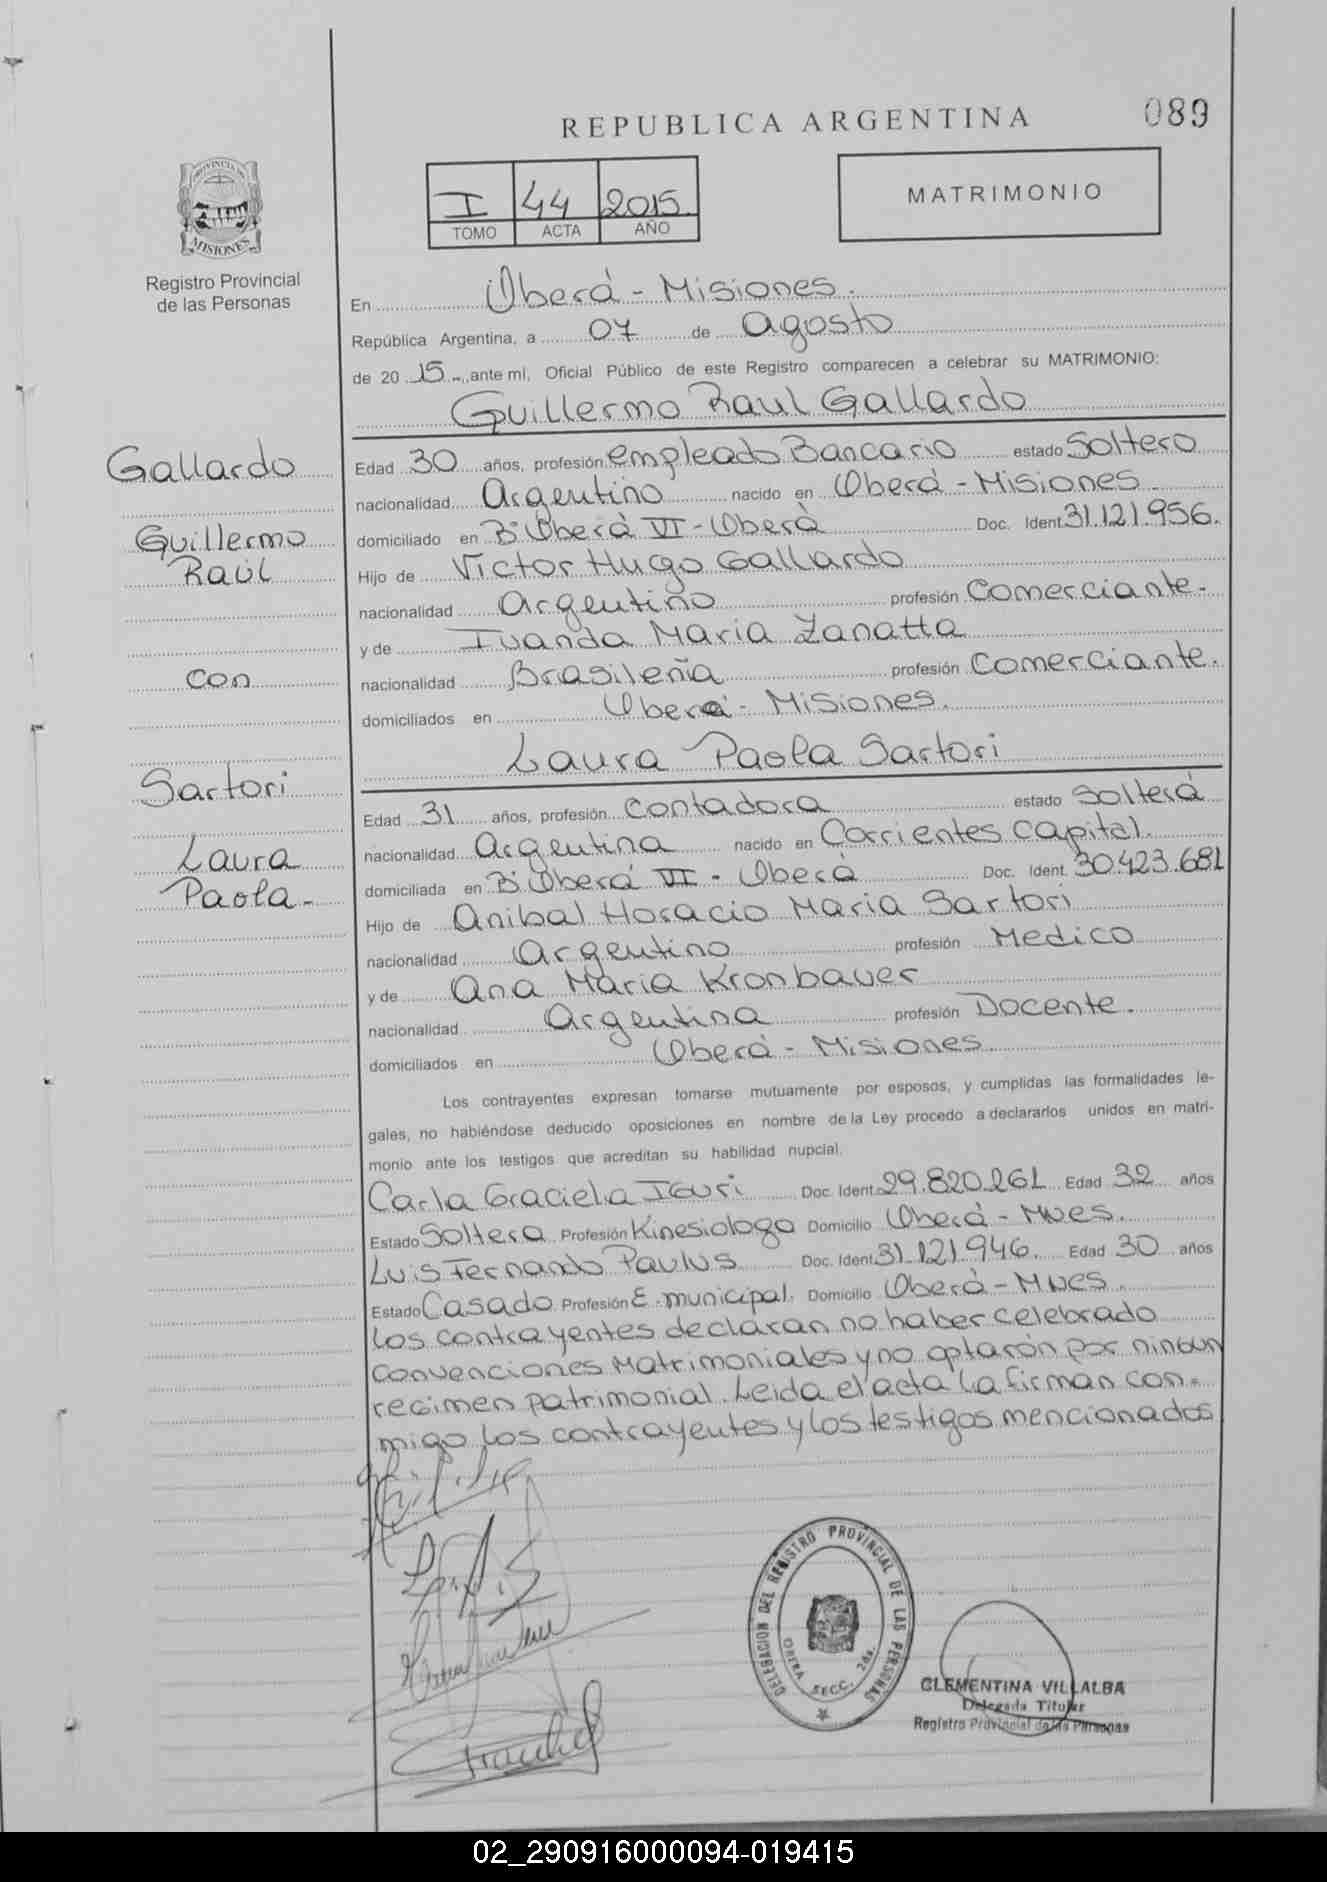 REPUBLICA ARGENTINA
089
PROVINCIA DE
MISIONES
Registro Provincial
de las Personas
I 44 2015.
TOMO ACTA AÑO
MATRIMONIO
En Oberá - Misiones.
República Argentina, a 07 de Agosto
de 20 15 -, ante mí, Oficial Público de este Registro comparecen a celebrar su MATRIMONIO:
Guillermo Raul Gallardo
Gallardo
Guillermo
Raúl
con
Sartori
Laura
Paola.-
Edad 30 años, profesión empleado Bancario estado Soltero
nacionalidad Argentino nacido en Oberá - Misiones
domiciliado en B° Oberá VI - Oberá Doc. Ident. 31.121.956.
Hijo de Victor Hugo Gallardo
nacionalidad Argentino profesión Comerciante.
y de Ivanda Maria Zanatta
nacionalidad Brasileña profesión Comerciante.
domiciliados en Oberá - Misiones.
Laura Paola Sartori
Edad 31 años, profesión Contadora estado Solterá
nacionalidad Argentina nacido en Corrientes Capital.
domiciliada en B° Oberá VI - Oberá Doc. Ident. 30.423.681
Hijo de Anibal Horacio Maria Sartori
nacionalidad Argentino profesión Medico
y de Ana Maria Kronbauer
nacionalidad Argentina profesión Docente.
domiciliados en Oberá - Misiones
Los contrayentes expresan tomarse mutuamente por esposos, y cumplidas las formalidades le-
gales, no habiéndose deducido oposiciones en nombre de la Ley procedo a declararlos unidos en matri-
monio ante los testigos que acreditan su habilidad nupcial.
Carla Graciela Iguri Doc. Ident. 29.820.261 Edad 32 años
Estado Soltera Profesión Kinesiologa Domicilio Oberá - Mnes.
Luis Fernando Paulus Doc. Ident. 31.121.946. Edad 30 años
Estado Casado Profesión E. municipal. Domicilio Oberá - Mnes.
Los contrayentes declaran no haber celebrado
Convenciones Matrimoniales y no optarón por ningun
regimen patrimonial. Leida el acta la firman con-
migo los contrayentes y los testigos mencionados
DELEGACION DEL REGISTRO PROVINCIAL DE LAS PERSONAS
OBERA SECC. 2da.
CLEMENTINA VILLALBA
Delegada Titular
Registro Provincial de las Personas
02_290916000094-019415